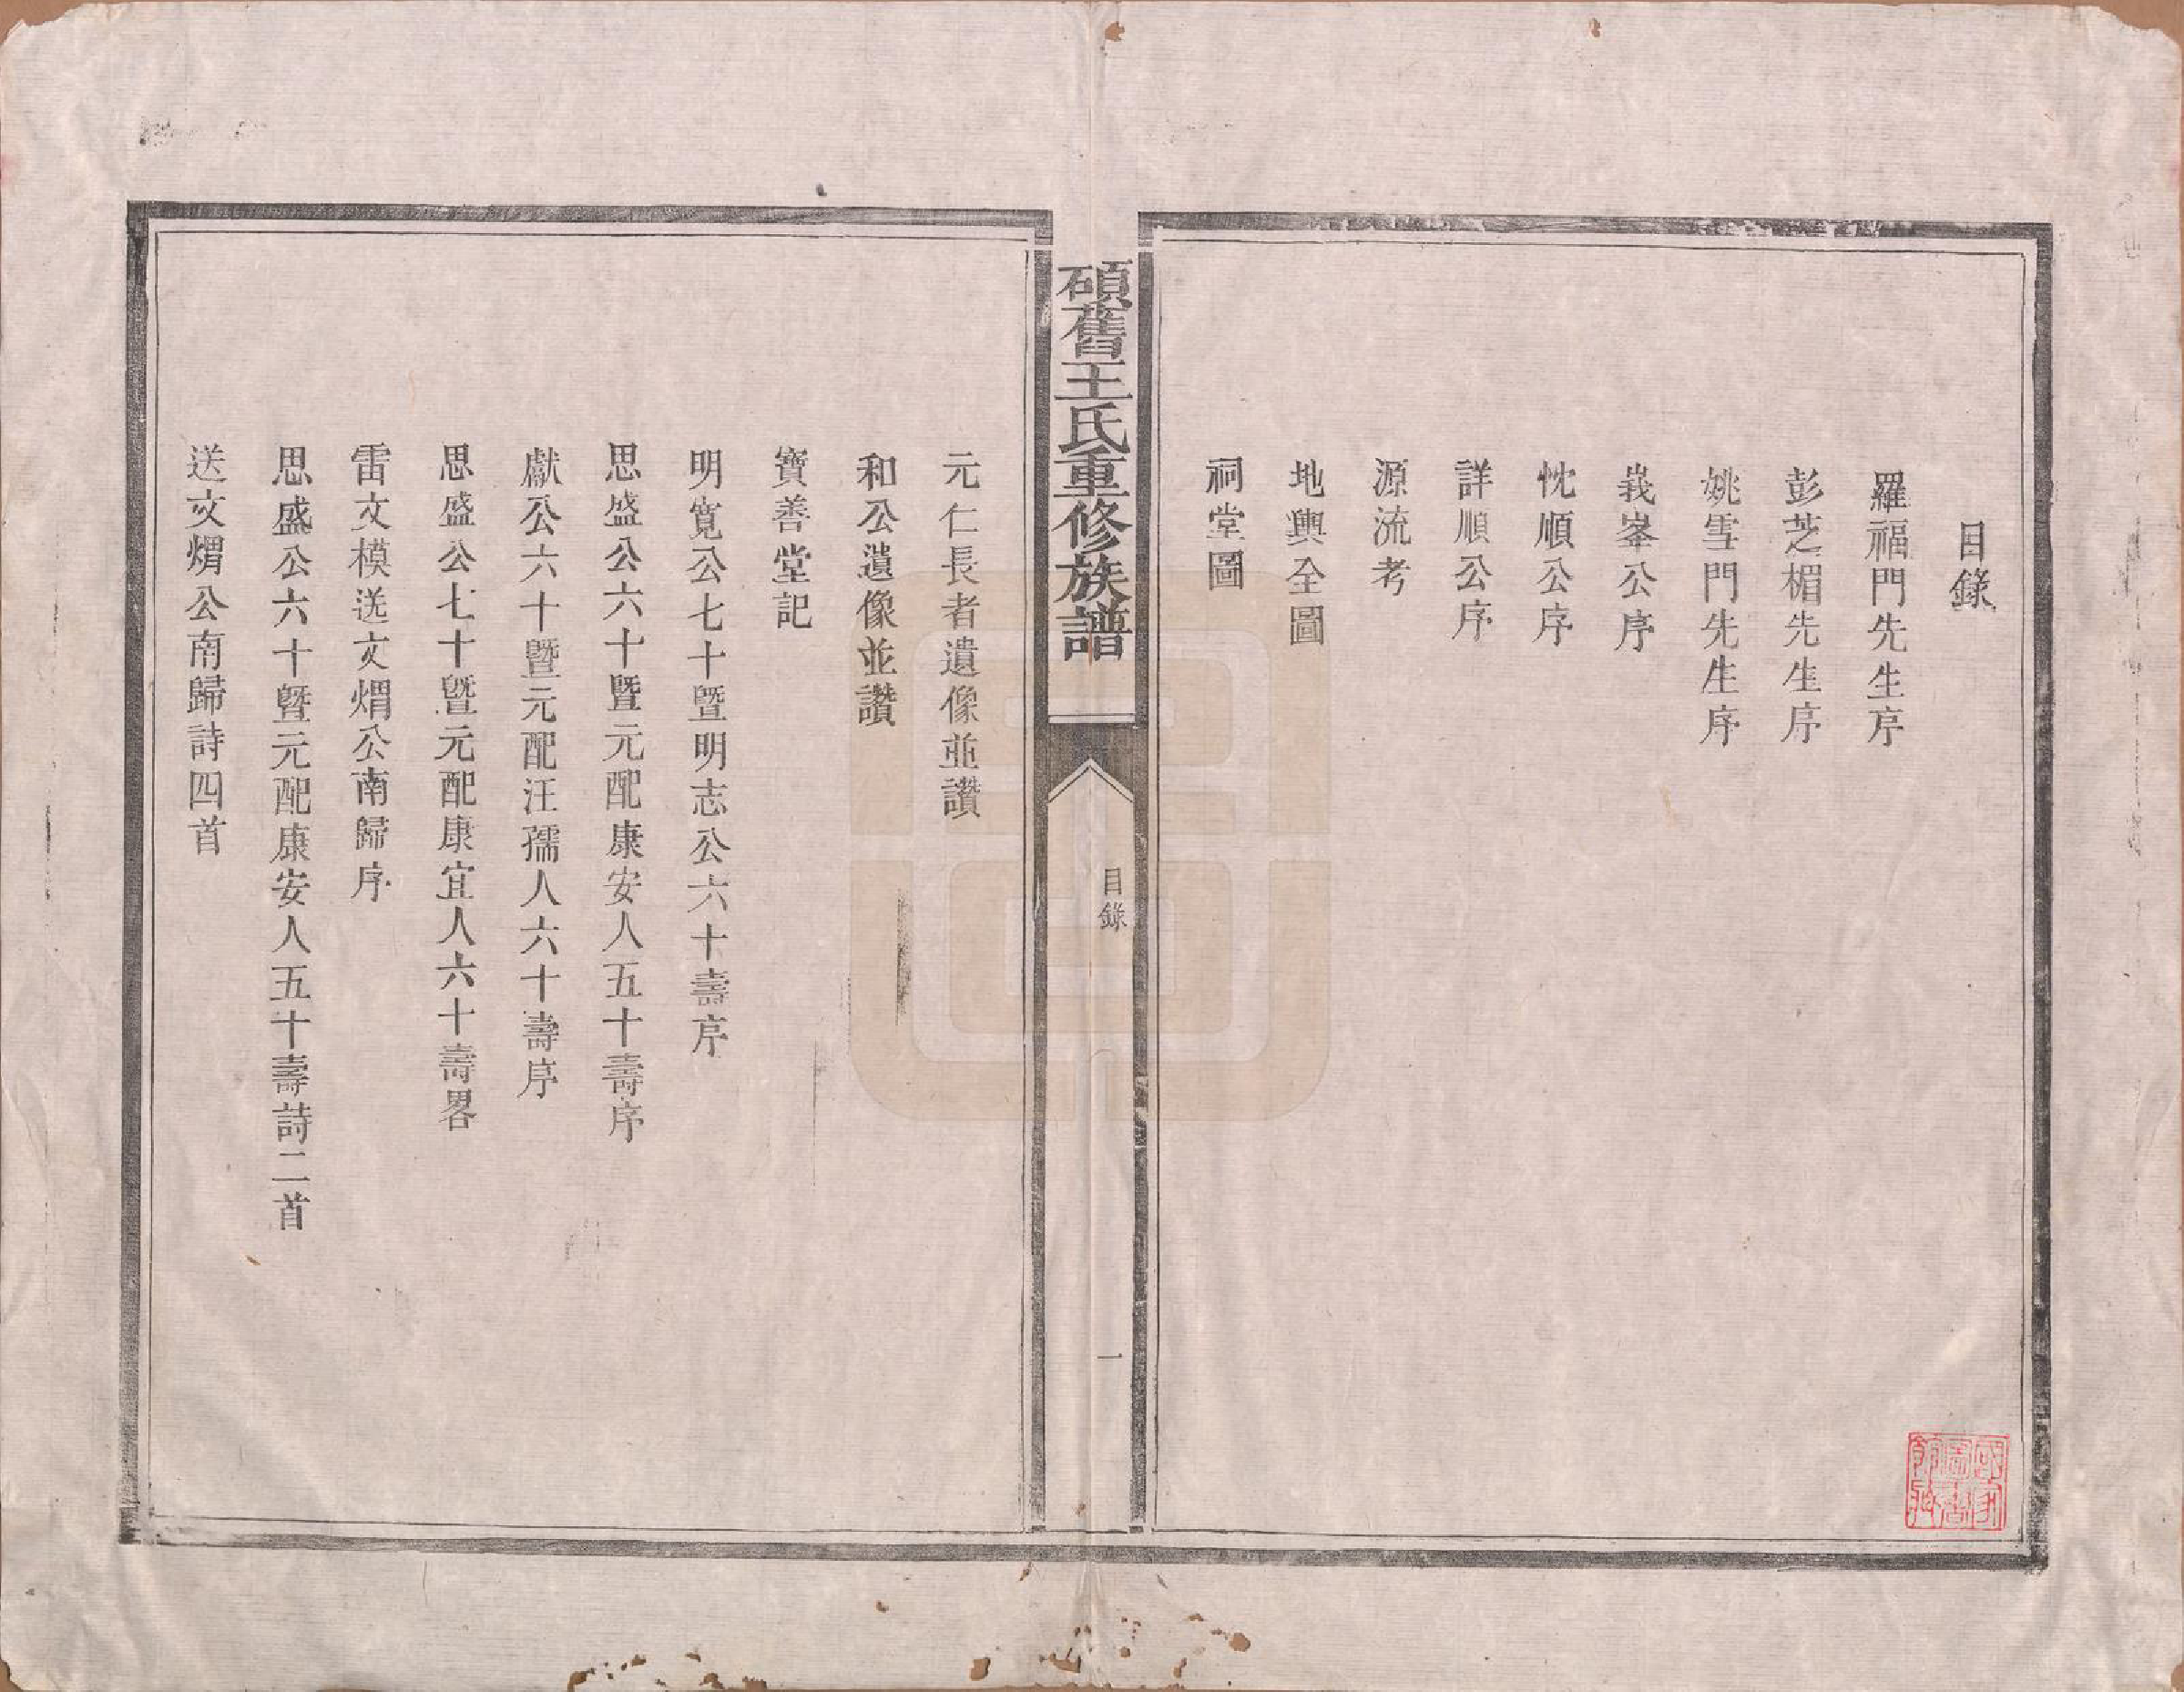 目錄
羅福門先生序
彭芝楣先生序
姚雪門先生序
峩峯公序
忱順公序
詳順公序
源流考
地輿全圖
祠堂圖
碩舊王氏重修族譜
目錄
一
元仁長者遺像並讚
和公遺像並讚
寶善堂記
明寬公七十暨明志公六十壽序
思盛公六十暨元配康安人五十壽序
獻公六十暨元配汪孺人六十壽序
思盛公七十暨元配康宜人六十壽畧
雷文模送文煟公南歸序
思盛公六十暨元配康安人五十壽詩二首
送文煟公南歸詩四首